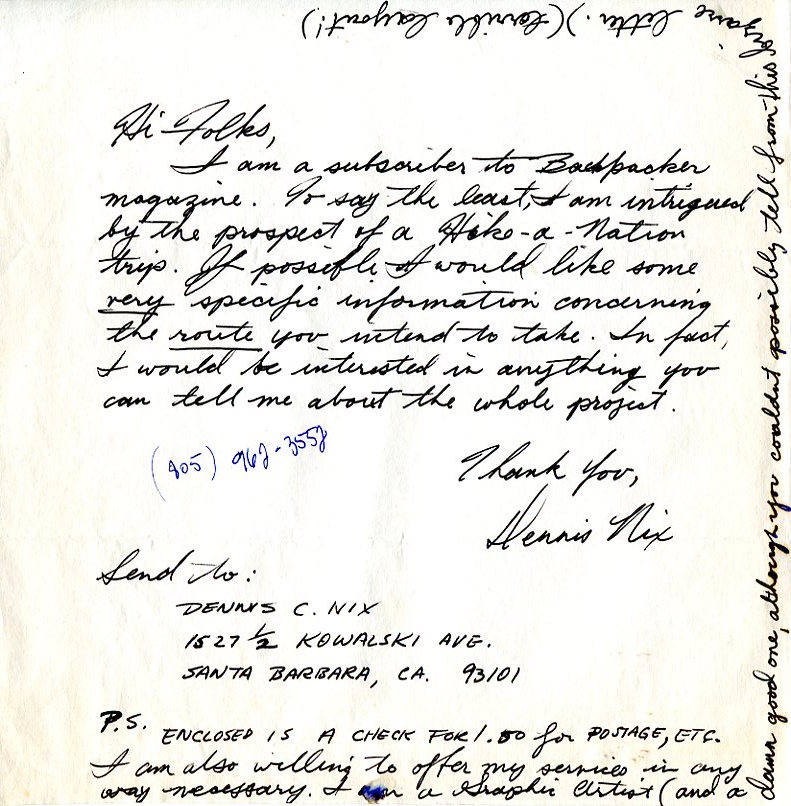 Hi Folks,
I am a subscriber to Backpacker
magazine. To say the least, I am intrigued
by the prospect of a Hike-a-Nation
trip. If possible I would like some
very specific information concerning
the route you intend to take. In fact,
I would be interested in anything you
can tell me about the whole project.
(805) 962-3552
Thank You,
Dennis Nix
Send to:
DENNIS C. NIX
1527 1/2 KOWALSKI AVE.
SANTA BARBARA, CA. 93101
P.S. ENCLOSED IS A CHECK FOR 1.50 for POSTAGE, ETC.
I am also willing to offer my services in any
way necessary. I am a Graphic Artist (and a
damn good one, although you couldn't possibly tell from this
bizarre letter.) (terrible layout!)